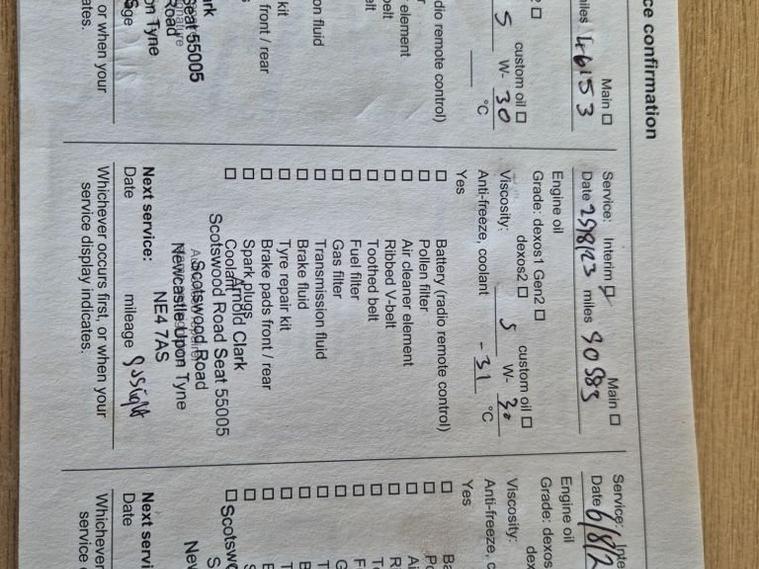 ce confirmation
Main ☐
miles 46153
custom oil ☐
5 W- 30
°C
radio remote control)
r
element
belt
elt
on fluid
kit
front / rear
s
ark
Seat 55005
Road
on Tyne
or when your
ates.
Service: Interim ☑ Main ☐
Date miles
Engine oil
Grade: dexos1 Gen2 ☐
dexos2 ☐ custom oil ☐
Viscosity: 5 W- 30
Anti-freeze, coolant -31 °C
Yes
☐ Battery (radio remote control)
☐ Pollen filter
☐ Air cleaner element
☐ Ribbed V-belt
☐ Toothed belt
☐ Fuel filter
☐ Gas filter
☐ Transmission fluid
☐ Brake fluid
☐ Tyre repair kit
☐ Brake pads front / rear
☐ Spark plugs
☐ Coolant
Arnold Clark
Scotswood Road Seat 55005
Scotswood Road
Newcastle Upon Tyne
NE4 7AS
Next service:
Date mileage
Whichever occurs first, or when your
service display indicates.
Service: Inte
Date 6/8/2
Engine oil
Grade: dexos
dex
Viscosity:
Anti-freeze, c
Yes
☐ Ba
☐ Po
☐ Ai
☐ R
☐ T
☐ F
☐ G
☐ T
☐ B
☐ T
☐ B
☐ S
☐
Scotsw
S
New
Next servi
Date
Whichever
service